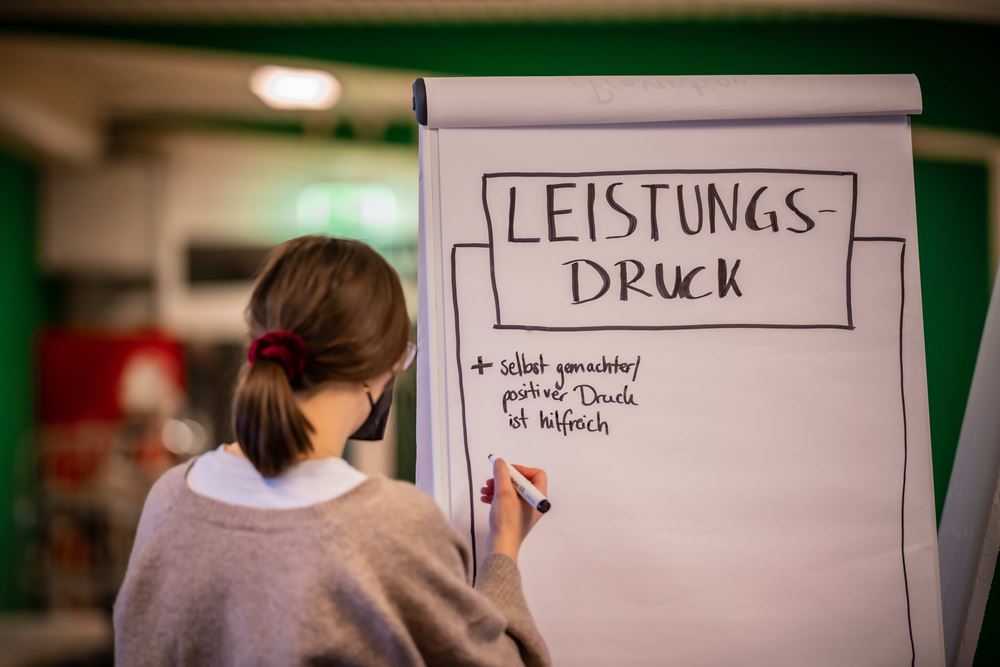 LEISTUNGS-
DRUCK
+ selbst gemachter/
positiver Druck
ist hilfreich